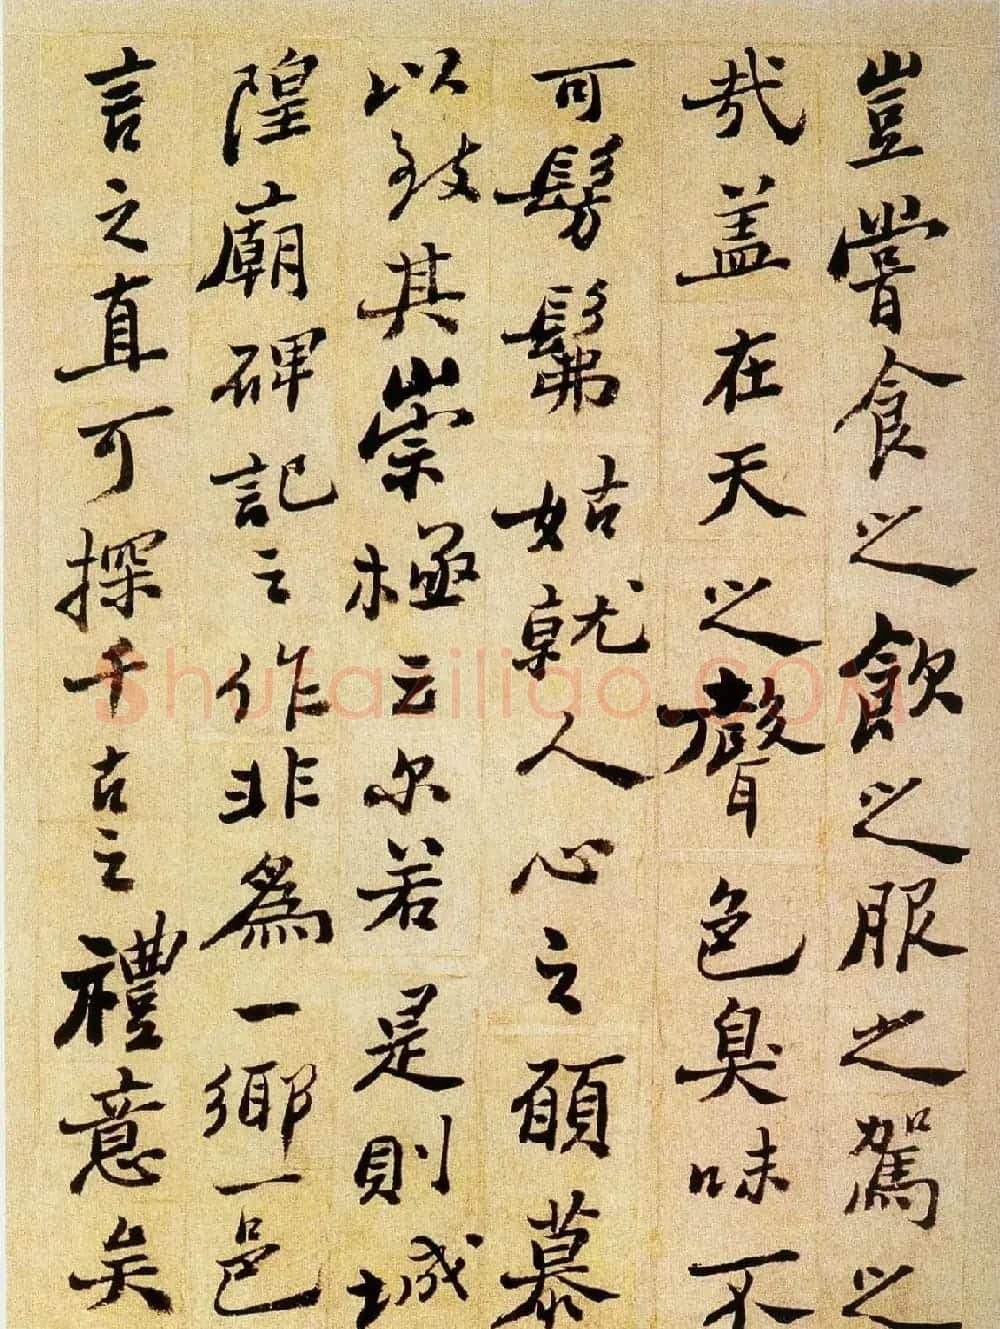 豈嘗食之飲之服之駕之
哉盖在天之聲色臭味不
可髣髴姑就人心之願慕
以致其崇極云尔若是則城
隍廟碑記之作非爲一鄉一邑
言之直可探千古之禮意矣
shufaziliao.COM